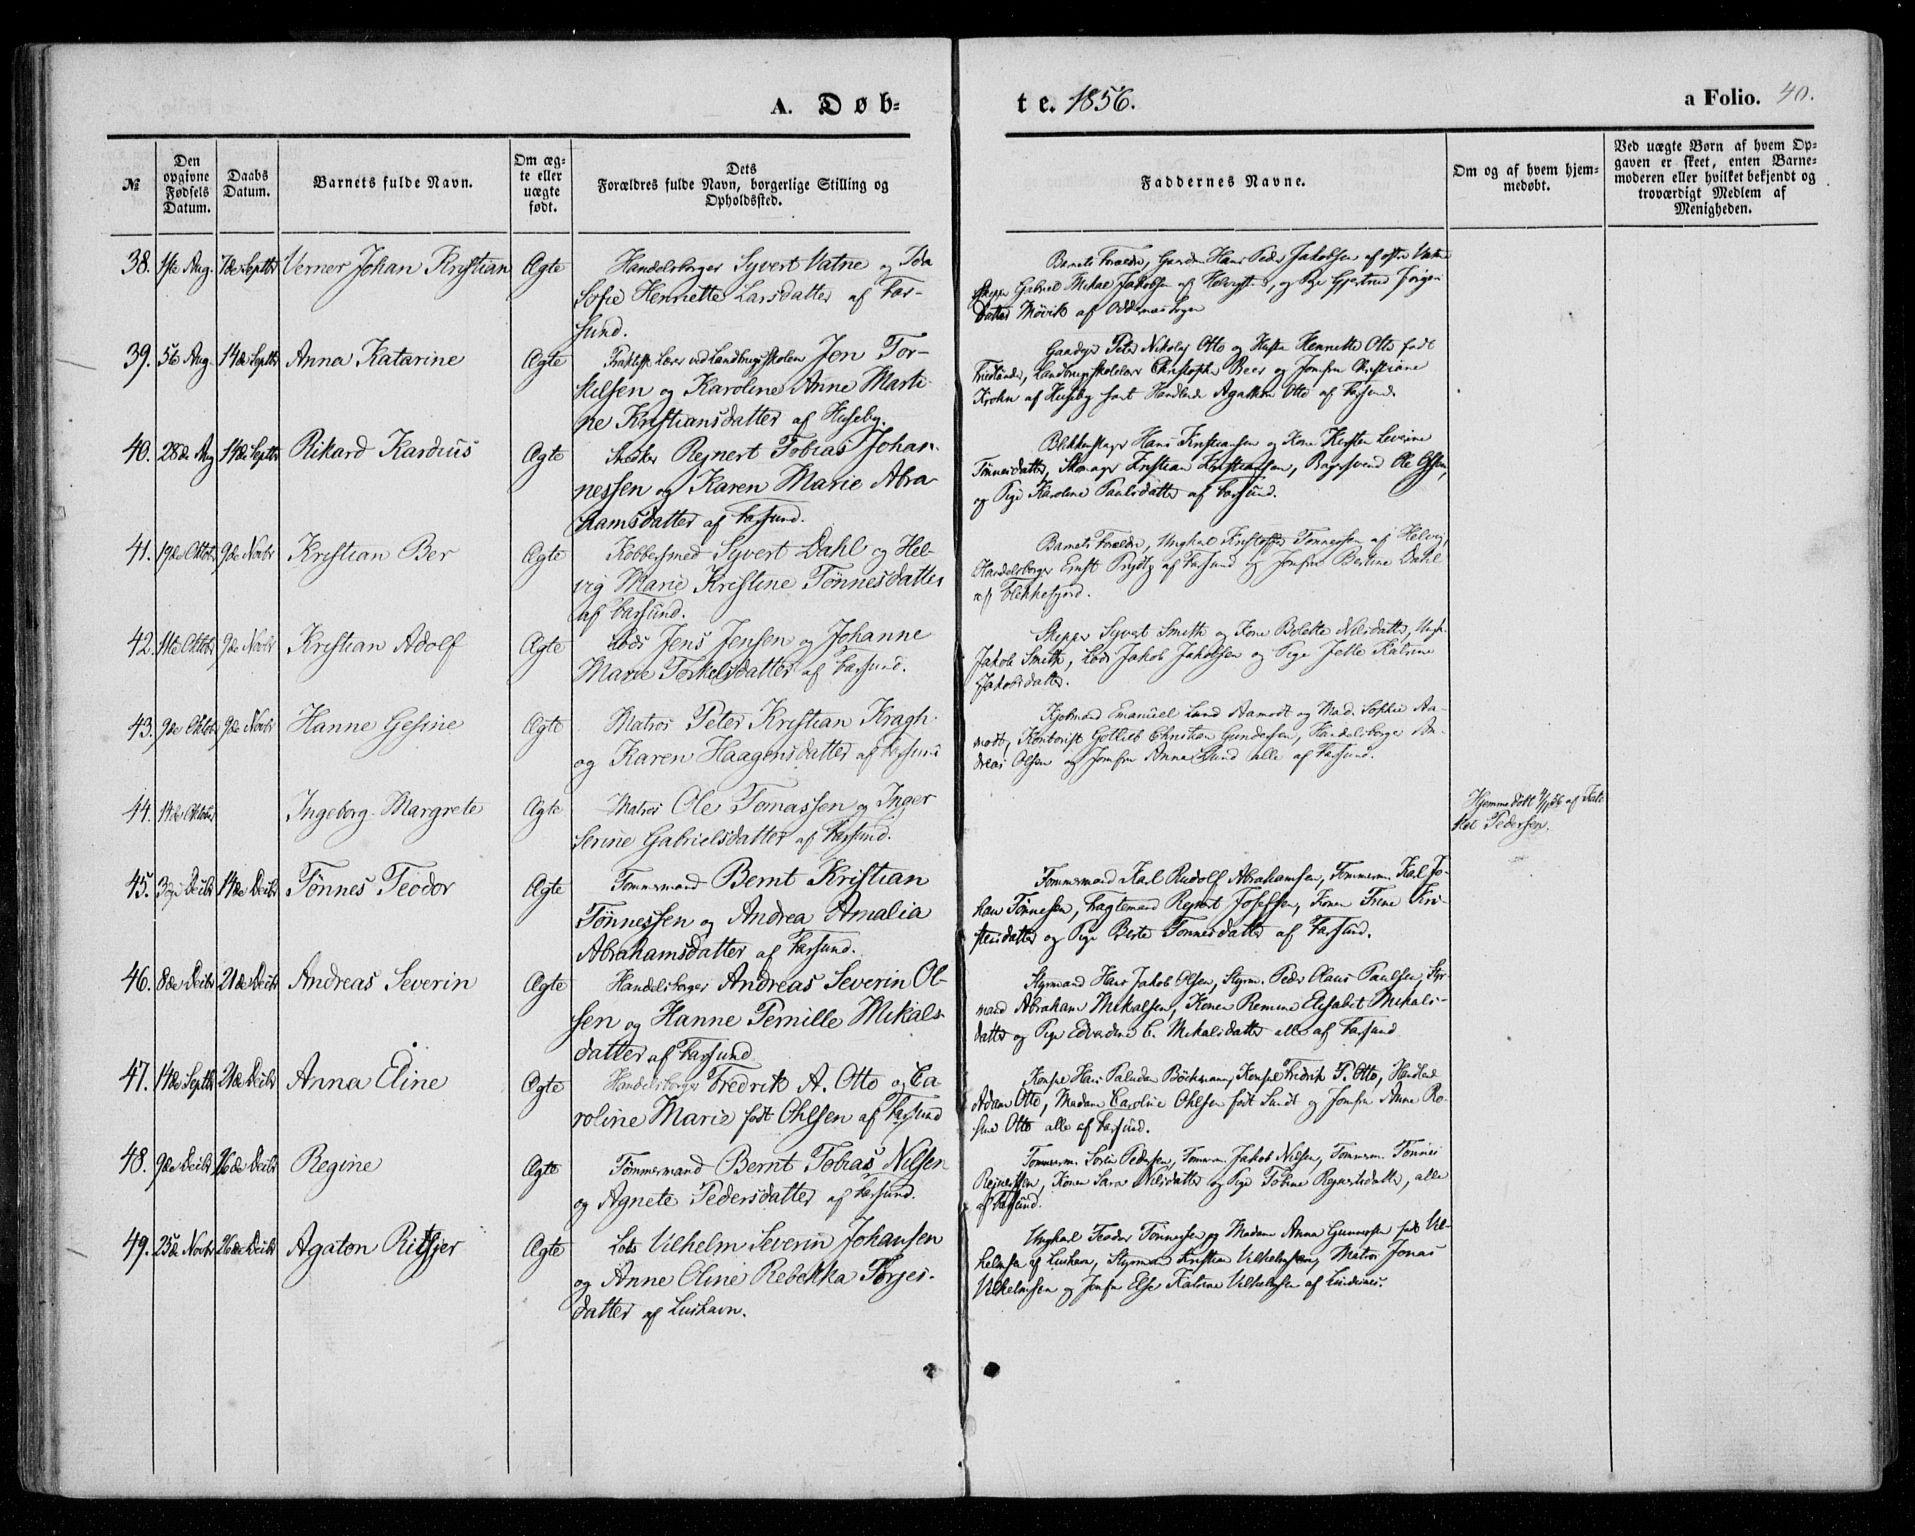 A. Døb-
te. 1856.
a Folio. 40.
№
Den opgivne Fødsels Datum.
Daabs Datum.
Barnets fulde Navn.
Om ægte eller uægte født.
Dets Forældres fulde Navn, borgerlige Stilling og Opholdssted.
Faddernes Navne.
Om og af hvem hjemmedøbt.
Ved uægte Børn af hvem Opgaven er skeet, enten Barnemoderen eller hvilket bekjendt og troværdigt Medlem af Menigheden.
38. 1ste Aug. 7de Septbr Verner Johan Kristian Ægte
Handelsborger Syvert Vatne og Ida
Sofie Henriette Larsdatter af Far-
sund.
Barnets Forældre, Hans Peder Jakobsen af
Skipper Gabriel Mikal Jakobsen af og Pige Gjertrud Jørgens
datter Møvik af Oddernes Sogn
39. 5te Aug. 14de Septbr Anna Katarine Ægte
Praktisk Lærer ved Landbrugsskolen Jon Tor-
kilsen og Karoline Anne Marti-
ne Kristiansdatter af Huseby.
Peter Nikolaj Otto og Hustru Henriette Otto født
Friedlander, Christopher Beer og Jomfru Christiane
Krohn af Huseby samt Agathon Otto af Farsund.
40. 28de Aug 14de Septbr Rikard Kardius Ægte
Snedker Rejnert Tobias Johan-
nessen og Karen Marie Abra-
hamsdatter af Farsund.
Blikkenslager Hans Kristiansen og Kone Kirsten Severine
Tønnesdatter, Skomager Kristian Kristiansen, Bagersvend Ole Olsen,
og Pige Karoline Paulsdatter af Farsund.
41. 17de Oktbr 9de Novbr Kristian Ber Ægte
Kobbersmed Syvert Dahl og Hel-
vig Marie Kristine Tønnesdatter
af Farsund.
Barnets Forældre, Ungkarl Kristoffer Tønnessen af Helvig,
Handelsborger Ernst Prydtz af Farsund og Jomfru Bertine Dahl
af Flekkefjord.
42. 11te Oktbr 9de Novbr Kristian Adolf Ægte
Lods Jens Jensen og Johanne
Marie Torkelsdatter af Farsund.
Skipper Syvert Smith og Kone Bolette Nilsdatter, Ungk.
Jakob Smith, Lods Jakob Jakobsen og Pige Jelle Katrine
Jakobsdatter.
43. 9de Oktbr 9de Novbr Hanne Gesine Ægte
Matros Peter Kristian Kragh
og Karen Haagensdatter af Farsund
Kjøbmand Emanuel Lund Aamodt og Mad. Sophie Aa-
modt, Kontorist Gotlieb Christian Gundersen, Handelsborger An-
dreas Olsen og Jomfru Anna Lund alle af Farsund.
44. 14de Oktober Ingeborg Margrete Ægte
Matros Ole Tomassen og Inger
Serine Gabrielsdatter af Farsund.
Hjemmedøbt af
Pedersen.
45. 3die Decbr 14de Decbr Tønnes Teodor Ægte
Tømmermand Bernt Kristian
Tønnessen og Andrea Amalia
Abrahamsdatter af Farsund.
Tømmermand Karl Rudolf Abrahamsen, Tømmerm. Karl Jo-
han Tønnesen, Fragtemand Rejnert Josefsen, Konen Trine Kri-
stensdatter og Pige Berte Tønnesdatter af Farsund.
46. 8de Decbr 21de Decbr Andreas Severin Ægte
Handelsborger Andreas Severin Ol-
sen og Hanne Pernille Mikals-
datter af Farsund
Styrmand Hans Jakob Olsen, Styrm. Peder Olaus Paulsen, Styr-
mand Abraham Mikalsen, Konen Remine Elisabet Mikals-
datter og Pige Edvardine C. Mikalsdatter alle af Farsund
47. 14de Septbr 21de Decbr Anna Eline Ægte
Handelsborger Fredrik A. Otto og Ca-
roline Marie født Ohlsen af Farsund
Konsul Hans Paludan Böckmann, Konsul Fredrik P. Otto,
Adam Otto, Madam Caroline Ohlsen født Sundt og Jomfru Anne Ro-
sine Otto alle af Farsund.
48. 9de Decbr 26de Decbr Regine Ægte
Tømmermand Bernt Tobias Nilsen
og Agnete Pedersdatter af Farsund.
Tømmerm. Søren Pedersen, Tømmerm. Jakob Nilsen, Tømmerm. Tønnes
Rejnertsen, Konen Sara Nilsdatter og Pige Tobine Rejnertsdatter, alle
af Farsund.
49. 25de Novbr 26de Decbr Agaton Ritsjer Ægte
Lods Vilhelm Severin Johansen
og Anne Oline Rebekka Torjes-
datter af Lushavn.
Ungkarl Teodor Tønnessen og Madam Anna Gunnersen født Vil-
helmsen af Lushavn, Styrmand Kristian Vilhelmsen, Matros Jonas
Vilhelmsen og Jomfru Else Katrine Vilhelmsen af Lindesnes.